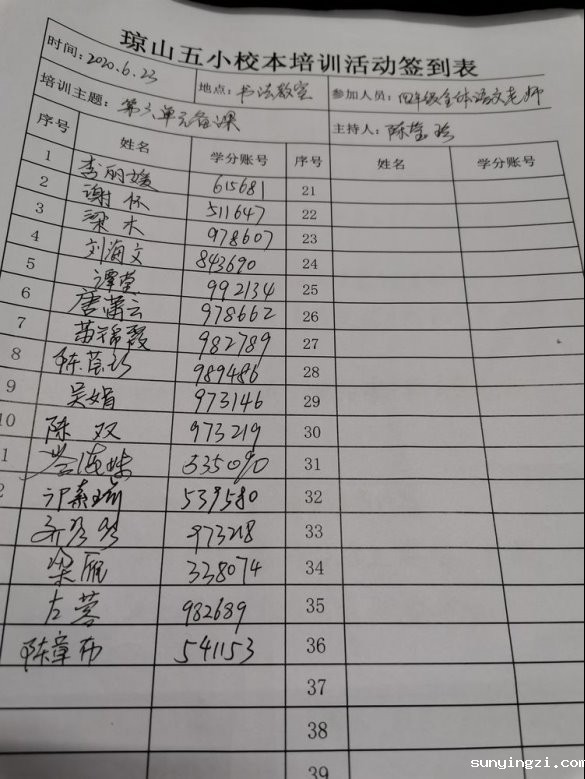 琼山五小校本培训活动签到表
时间：2020.6.23 地点：书法教室 参加人员：四年级全体语文老师
培训主题：第六单元备课 主持人：陈莹珍
序号 姓名 学分账号 序号 姓名 学分账号
1 李丽媛 615681 21
2 谢怀 511647 22
3 梁木 978607 23
4 刘海文 843690 24
5 谭莹 992134 25
6 唐蒲云 978662 26
7 苗锦霞 982789 27
8 989486 28
9 吴娟 973146 29
10 陈双 973219 30
1 335090 31
2 539580 32
973218 33
梁雁 338074 34
左蓉 982689 35
陈章布 541153 36
37
38
39
sunyingzi.com